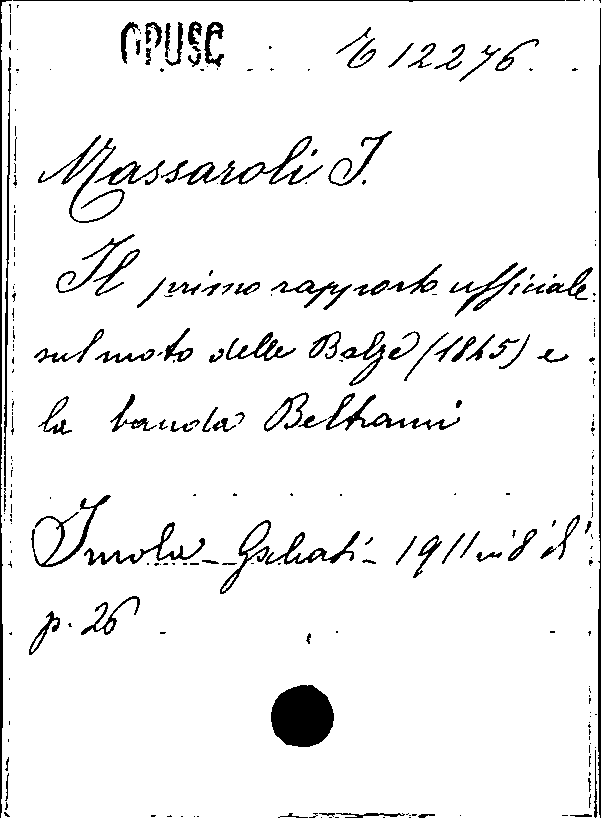 OPUSC E 12276
Massaroli I.
Il primo rapporto ufficiale
sul moto delle Balze (1845) e
la banda Beltrami
Imola - Galeati - 1911 in 8° di
p. 26